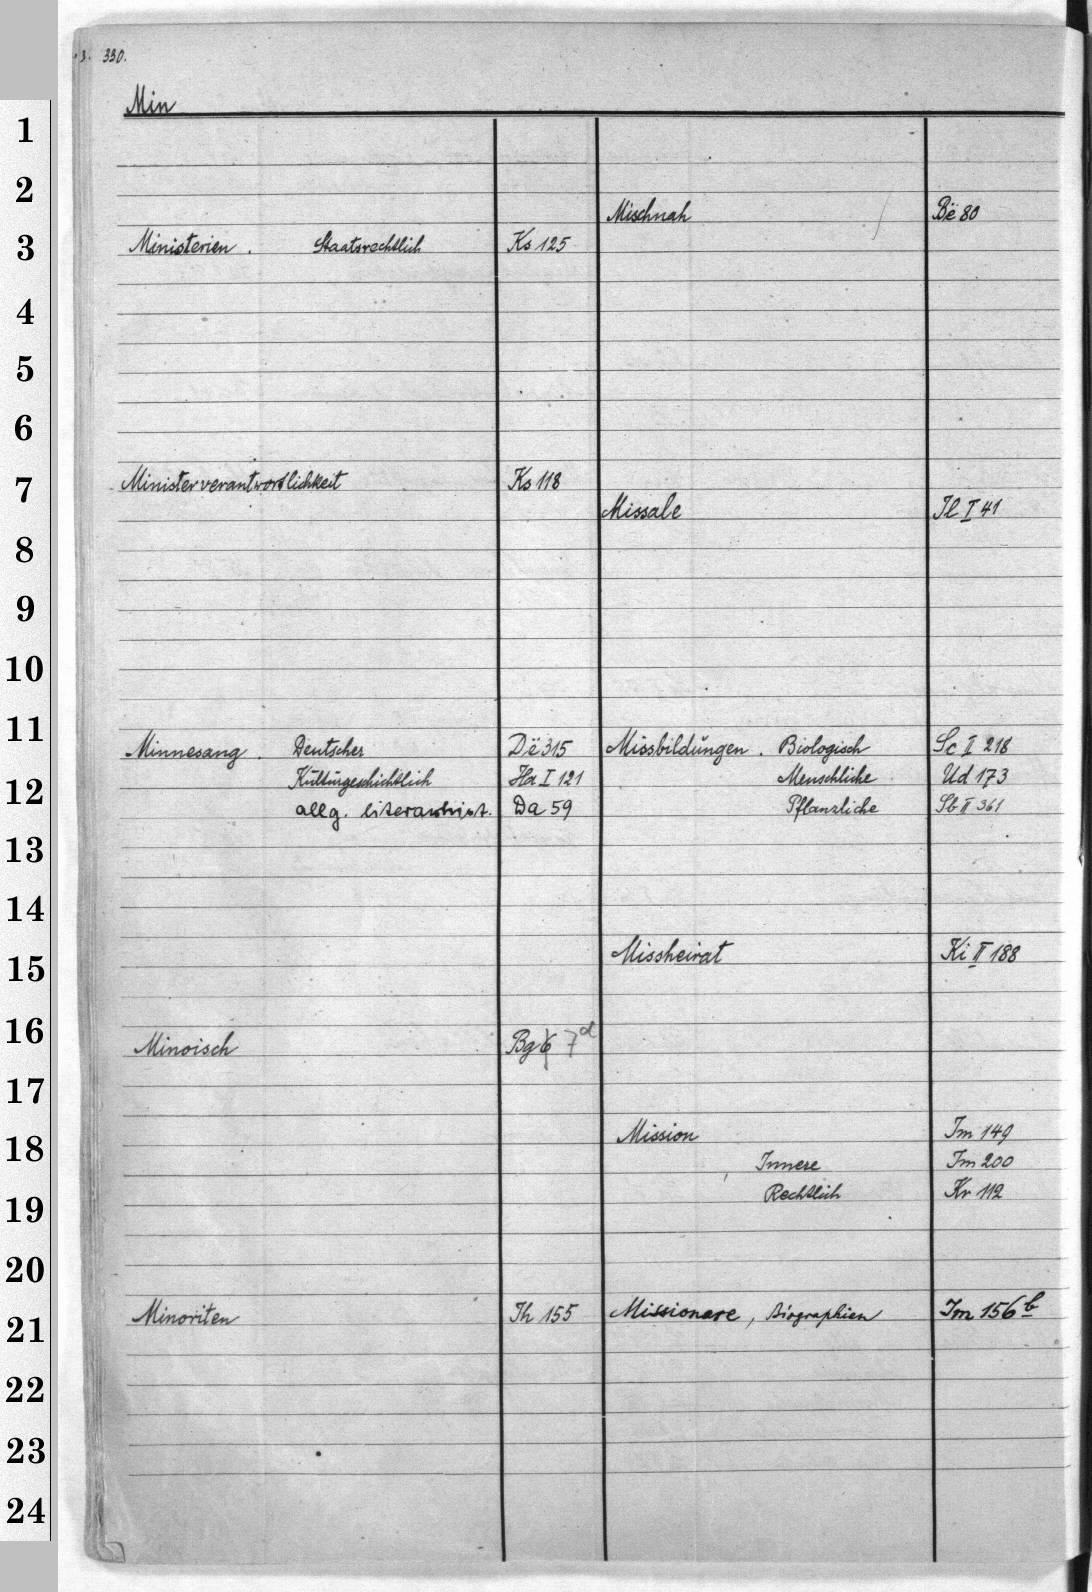 330.
Min
1
2
3
4
5
6
7
8
9
10
11
12
13
14
15
16
17
18
19
20
21
22
23
24
Ministerien. Staatsrechtlich Ks 125
Ministerverantwortlichkeit Ks 118
Minnesang. Deutscher Dë 315
Kulturgeschichtlich Ha I 121
allg. literarhist. Da 59
Minoisch Bg 6 7d
Minoriten Ih 155
Mischnah Bë 80
Missale Il I 41
Missbildungen. Biologisch Sc II 218
Menschliche Ud 173
Pflanzliche Sb II 361
Missheirat Ki II 188
Mission Im 149
Innere Im 200
Rechtlich Kr 112
Missionare, Biographien Im 156b